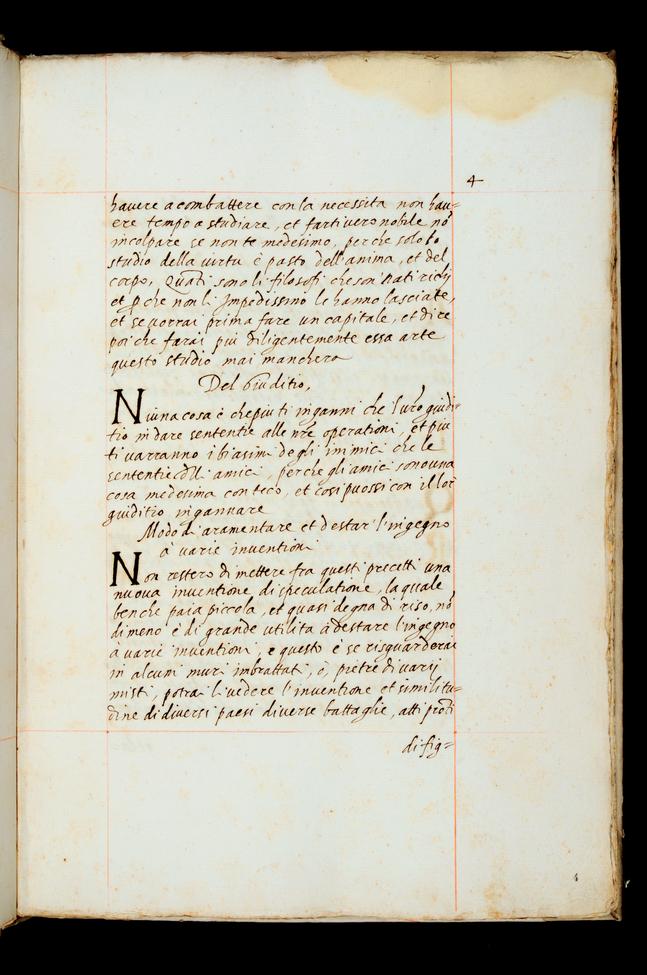 4
havere a combattere con la necessita non hav=
ere tempo a studiare, et farti vero nobile nō
incolpare se non te medesimo, perche solo lo
studio della virtu è pasto dell'anima, et del
corpo, Quāti sono li filosofi che son' nati richi
et p che non li Impedissino le hanno lasciate,
et se vorrai prima fare un capitale, et dire
poi che farai piu diligentemente essa arte
questo studio mai manchera
Del Giuditio,
Niuna cosa è che piu ti inganni che l'vr̄o giudi=
tio in dare sententie alle nr̄e operationi, et piu
ti varranno i biasimi degli inimici che le
sententie dll amici, perche gli amici sono una
cosa medesima con teco, et cosi puossi con il lor
giuditio ingannare
Modo di aramentare et destar' l'ingegno
a' varie inventioni
Non restero di mettere fra questi precetti una
nuova inventione di speculatione, la quale
benche paia piccola, et quasi degna di riso, nō
di meno è di grande utilita à destare l'ingegno
à varie inventioni, e questo è se risguarderai
in alcuni muri imbrattati, ò, pietre di varij
misti, potrai li vedere l'inventione et similitu=
dine di diversi paesi diverse battaglie, atti prōti
di fig=